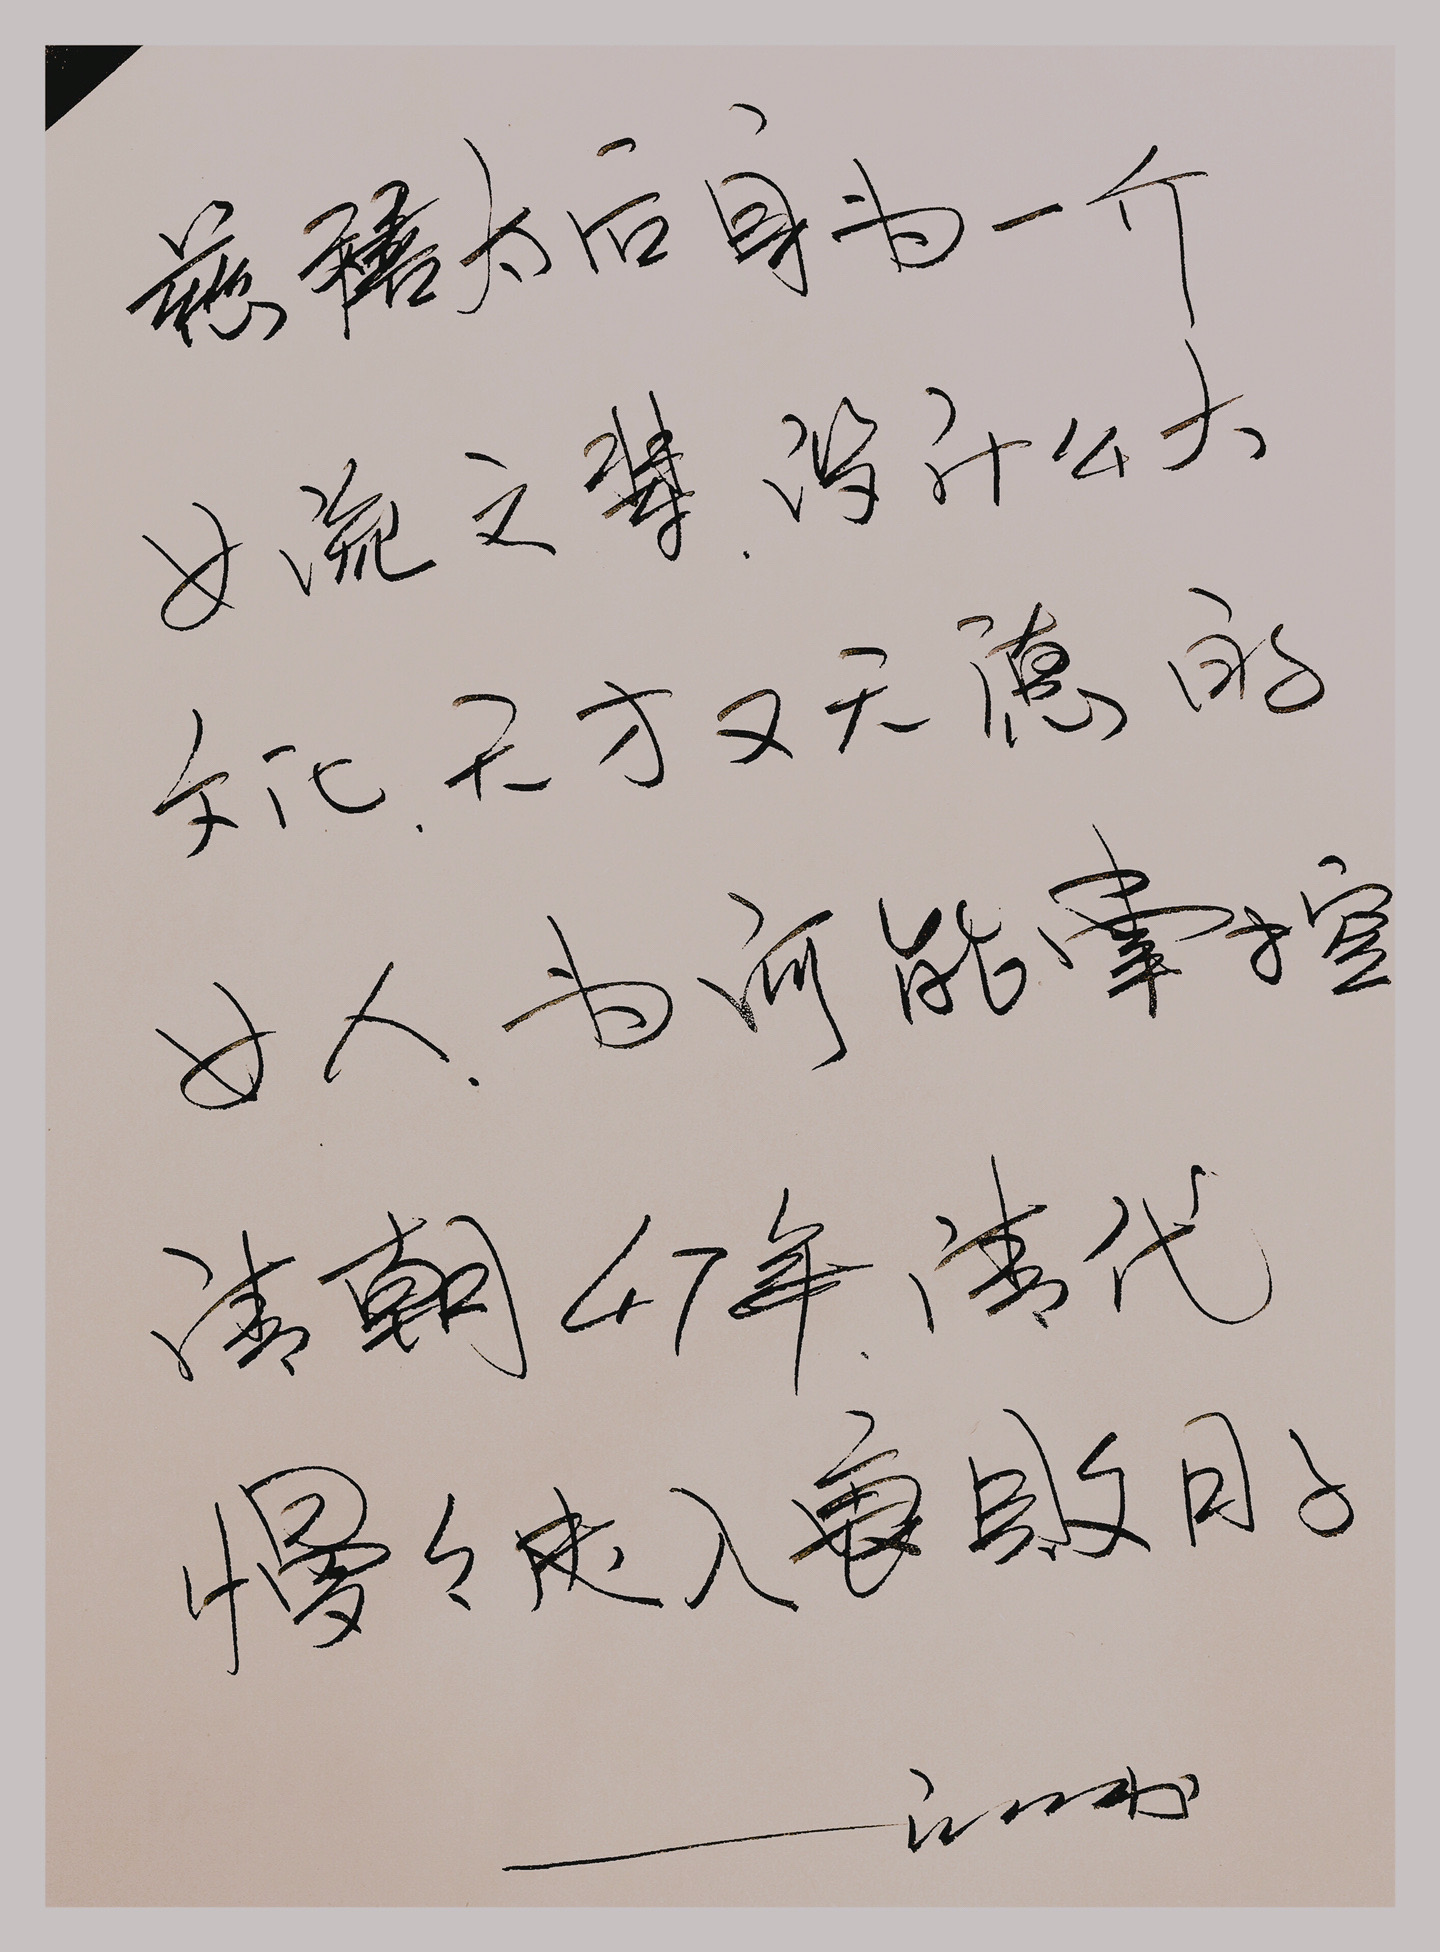 慈禧太后身为一介
女流之辈.没什么大
文化.无才又无德的
女人.为何能掌控
清朝47年.清代
慢々走入衰败日子